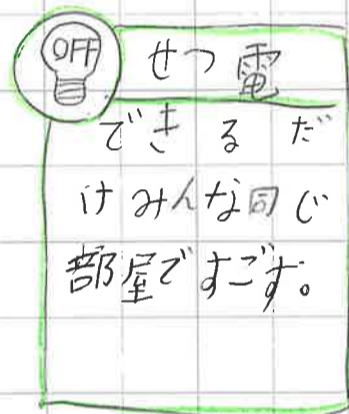 OFF
せつ電
できるだ
けみんな同じ
部屋ですごす。